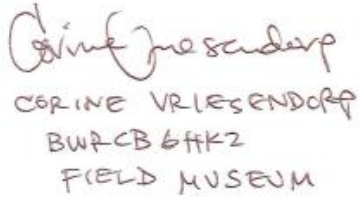 Corine Vriesendorp
CORINE VRIESENDORP
BWRCB6HK2
FIELD MUSEUM